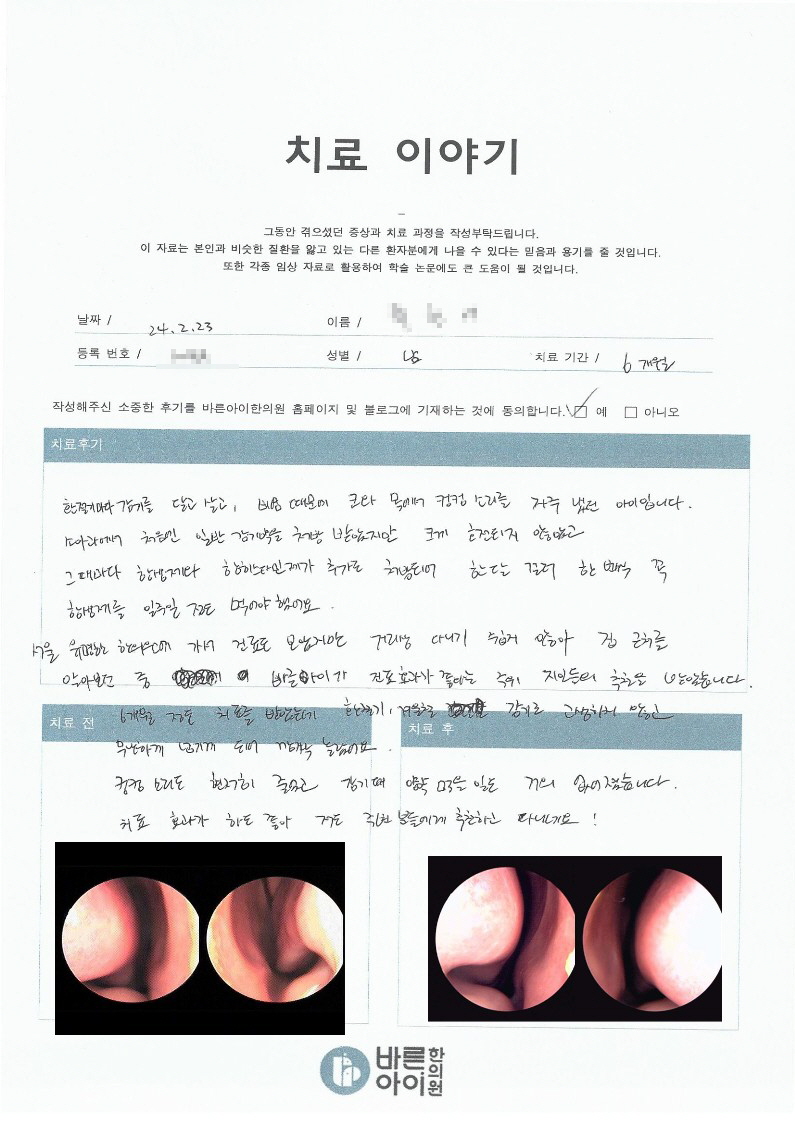 치료 이야기
그동안 겪으셨던 증상과 치료 과정을 작성부탁드립니다.
이 자료는 본인과 비슷한 질환을 앓고 있는 다른 환자분에게 나을 수 있다는 믿음과 용기를 줄 것입니다.
또한 각종 임상 자료로 활용하여 학술 논문에도 큰 도움이 될 것입니다.
날짜 / 24.2.23 이름 /
등록 번호 / 성별 / 남 치료 기간 / 6개월
작성해주신 소중한 후기를 바른아이한의원 홈페이지 및 블로그에 기재하는 것에 동의합니다. 예 아니오
치료후기
환절기마다 감기를 달고 살고, 비염 때문에 코와 목에서 킁킁 소리를 자주 냈던 아이입니다.
소아과에서 처음엔 일반 감기약을 처방 받았지만 크게 호전되지 않았고
그때마다 항생제와 항히스타민제가 추가로 처방되어 한 달 걸러 한 번씩 꼭
항생제를 일주일 정도 먹어야 했어요.
서울 유명한 한의원에 가서 진료도 보았지만 거리상 다니기 쉽지 않아 집 근처를
알아보던 중 바른아이가 진료효과가 좋다는 주위 지인들의 추천을 받았습니다.
치료 전 치료 후
6개월 정도 치료를 받았는데 환절기, 겨울철 감기로 고생하지 않고
무난하게 넘기게 되어 깜짝 놀랐어요.
킁킁 소리도 현저히 줄었고 감기때 약먹는 일은 거의 없어졌습니다.
치료 효과가 하도 좋아 저도 주변 분들에게 추천하고 다니네요!
바른
아이
한의원